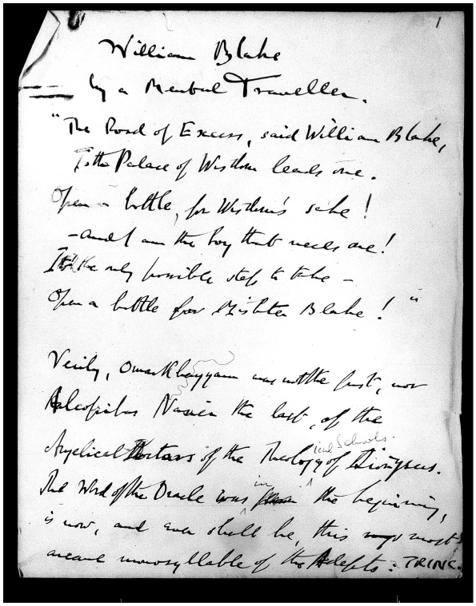 1
William Blake
by a Mental Traveller.
"The Road of Excess, said William Blake,
To the Palace of Wisdom leads one.
Open a bottle, for Wisdom's sake!
— and I am the boy that needs one!
It's the only possible step to take —
Open a bottle for Mister Blake!"
Verily, Omar Khayyam was not the first, nor
Alcofribas Nasier the last, of the
Angelical Doctors of the Theological Schools of Dionysus.
The Word of the Oracle was in the beginning,
is now, and ever shall be, this most
arcane monosyllable of the Adepts: TRINC.